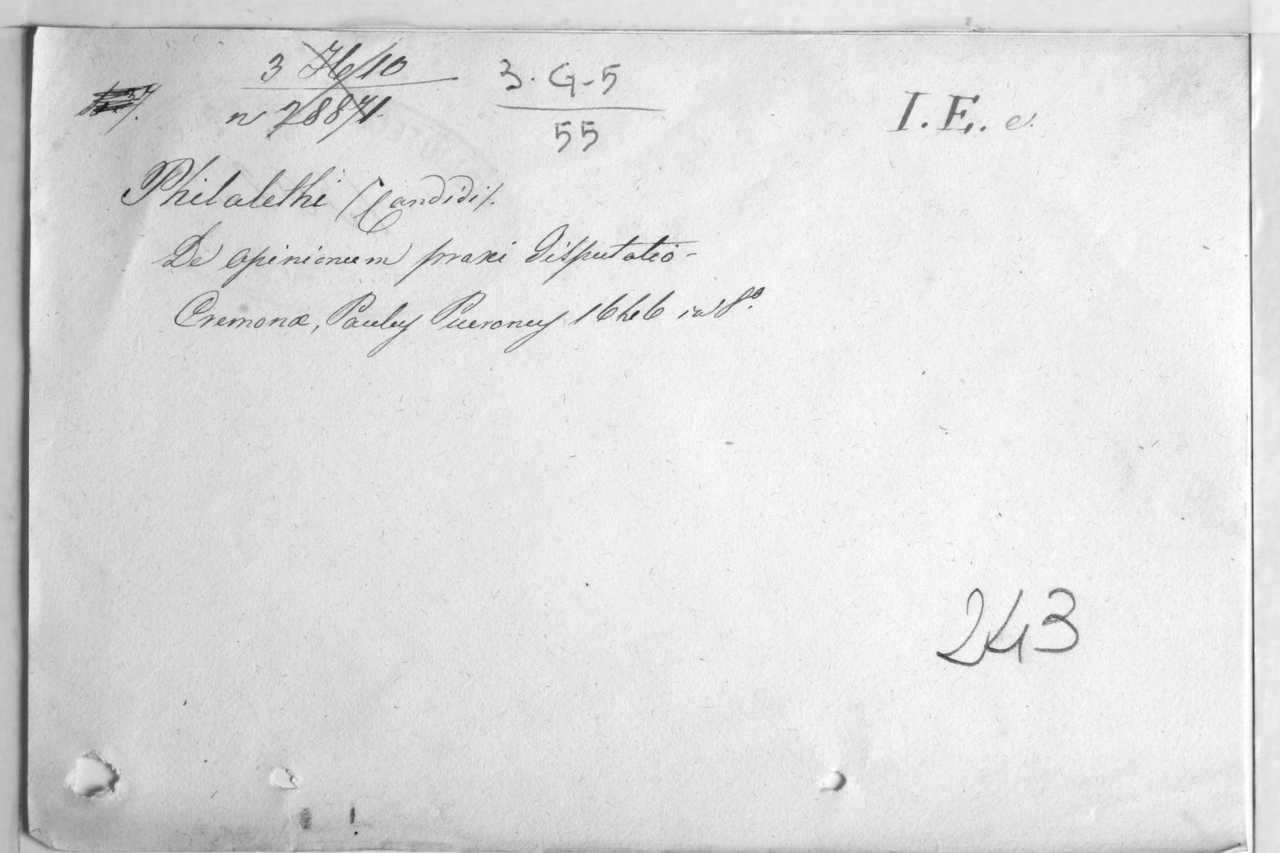 3 H/10
n 28871.
3. G-5
55
I. E. e.
Philalethi (Candidi).
De opinionum praxi disputatio-
Cremonæ, Paulus Pueronus, 1646 in 8º.
243